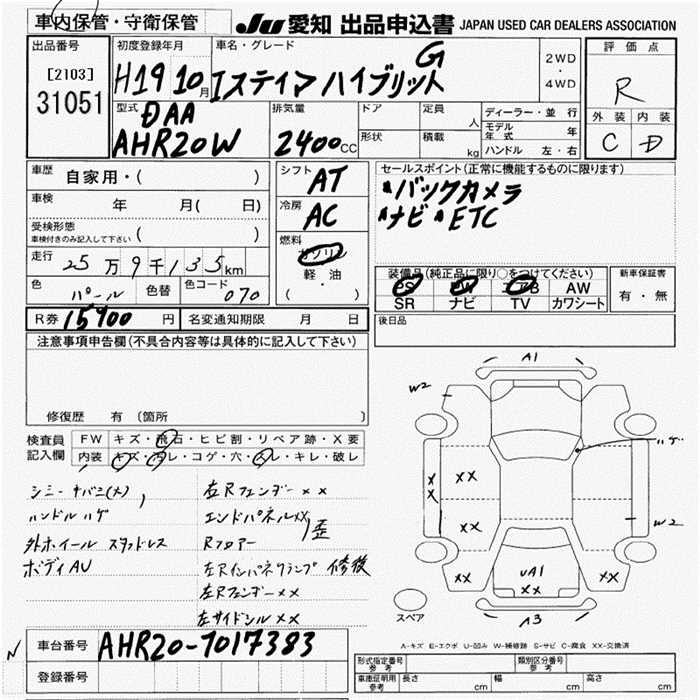 車内保管・守衛保管
JU 愛知 出品申込書 JAPAN USED CAR DEALERS ASSOCIATION
出品番号
[2103]
31051
初度登録年月
H19 10月
車名・グレード
エスティマ ハイブリット G
2WD
・
4WD
評価点
R
外装 内装
C D
型式
DAA
AHR20W
排気量
2400cc
ドア
形状
定員 人
積載 kg
ディーラー・並行
モデル年式 年
ハンドル 左・右
車歴 自家用・( )
車検 年 月( 日)
受検形態
車検付きのみ記入して下さい ( )
走行 25万9千135km
色 パール 色替 色コード 070
R券 15900円 名変通知期限 月 日
シフト
AT
冷房
AC
燃料
ガソリン
軽・油
( )
セールスポイント(正常に機能するものに限ります)
バックカメラ
ナビ ETC
装備品(純正品に限り○をつけてください)
PS PW エアB AW
SR ナビ TV カワシート
新車保証書
有・無
後日品
注意事項申告欄(不具合内容等は具体的に記入して下さい)
修復歴 有 〔箇所 〕
検査員記入欄
FW キズ・飛石・ヒビ割・リペア跡・X要
内装 キズ・汚レ・コゲ・穴・スレ・キレ・破レ
シミー ナバミ(大)
ハンドルハゲ
外ホイール スタッドレス
ボディAU
右Rフェンダー xx
エンドパネルxx
Rフロアー
歪
左Rインパネクランプ 修後
左Rフェンダー xx
左サイドシル xx
A1
W2
ハゲ
xx
xx
xx
W2
xx
UA1
xx
xx
A3
スペア
A-キズ E-エクボ U-凹み W-補修跡 S-サビ C-腐食 XX-交換済
車台番号 AHR20-7017383
登録番号
形式指定番号
参考
類別区分番号
参考
車庫証明用
参考
長さ cm 幅 cm 高さ cm